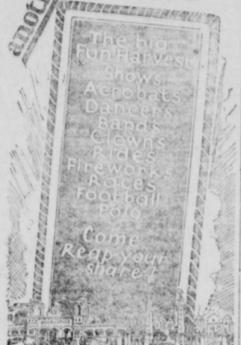 The big
Fun Harvest
Shows
Acrobats
Dancers
Bands
Clowns
Rides
Fireworks
Races
Football
Polo
Come
Reap your
share!